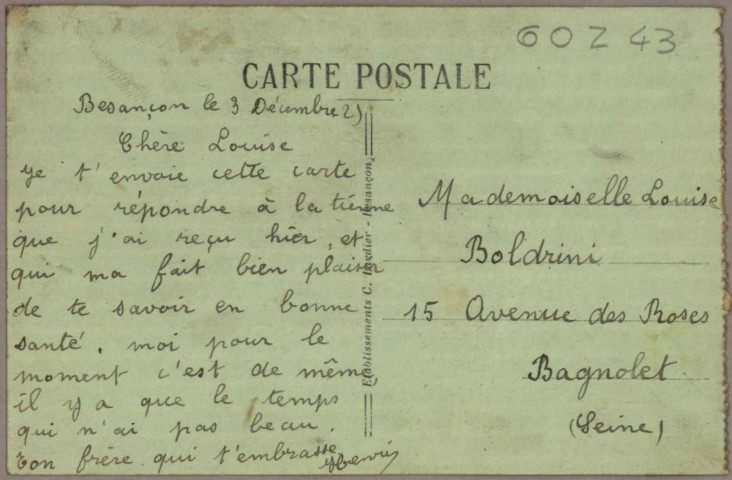 60Z 43
CARTE POSTALE
Besançon le 3 Décembre 2
Chère Louise
je t'envoie cette carte
pour répondre à la tienne
que j'ai reçu hier, et
qui ma fait bien plaisir
de te savoir en bonne
santé. moi pour le
moment c'est de même
il y a que le temps
qui n'ai pas beau.
Ton frère qui t'embrasse
Henri
Etablissements C. - Besançon
Mademoiselle Louise
Boldrini
15 Avenue des Roses
Bagnolet
(Seine)